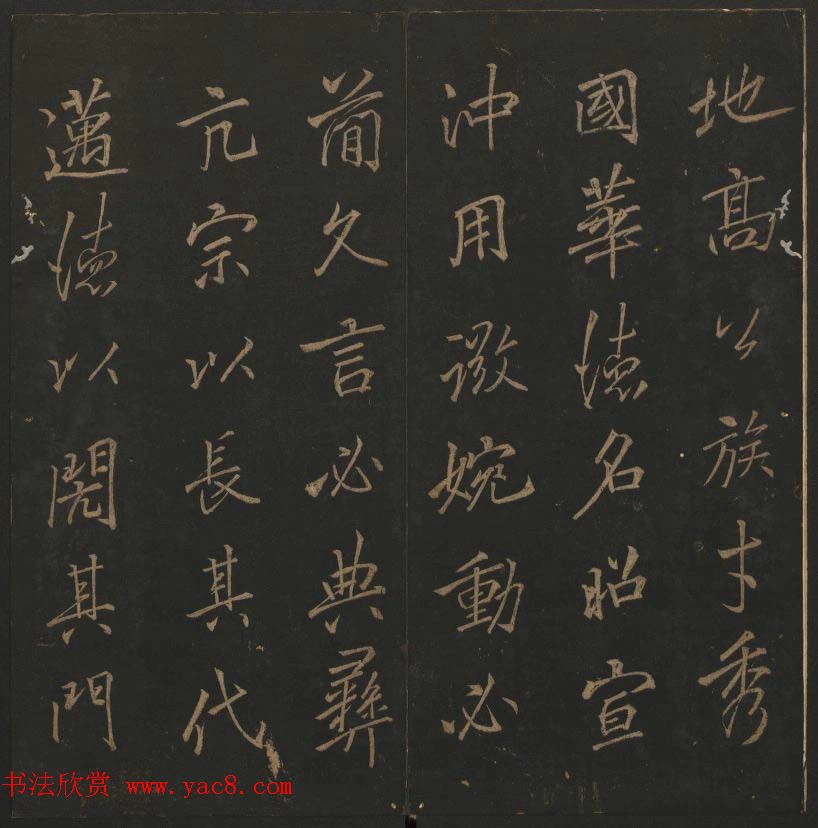 地高公族才秀
國華德名昭宣
沖用微婉動必
簡久言必典彝
亢宗以長其代
邁德以閌其門
书法欣赏 www.yac8.com